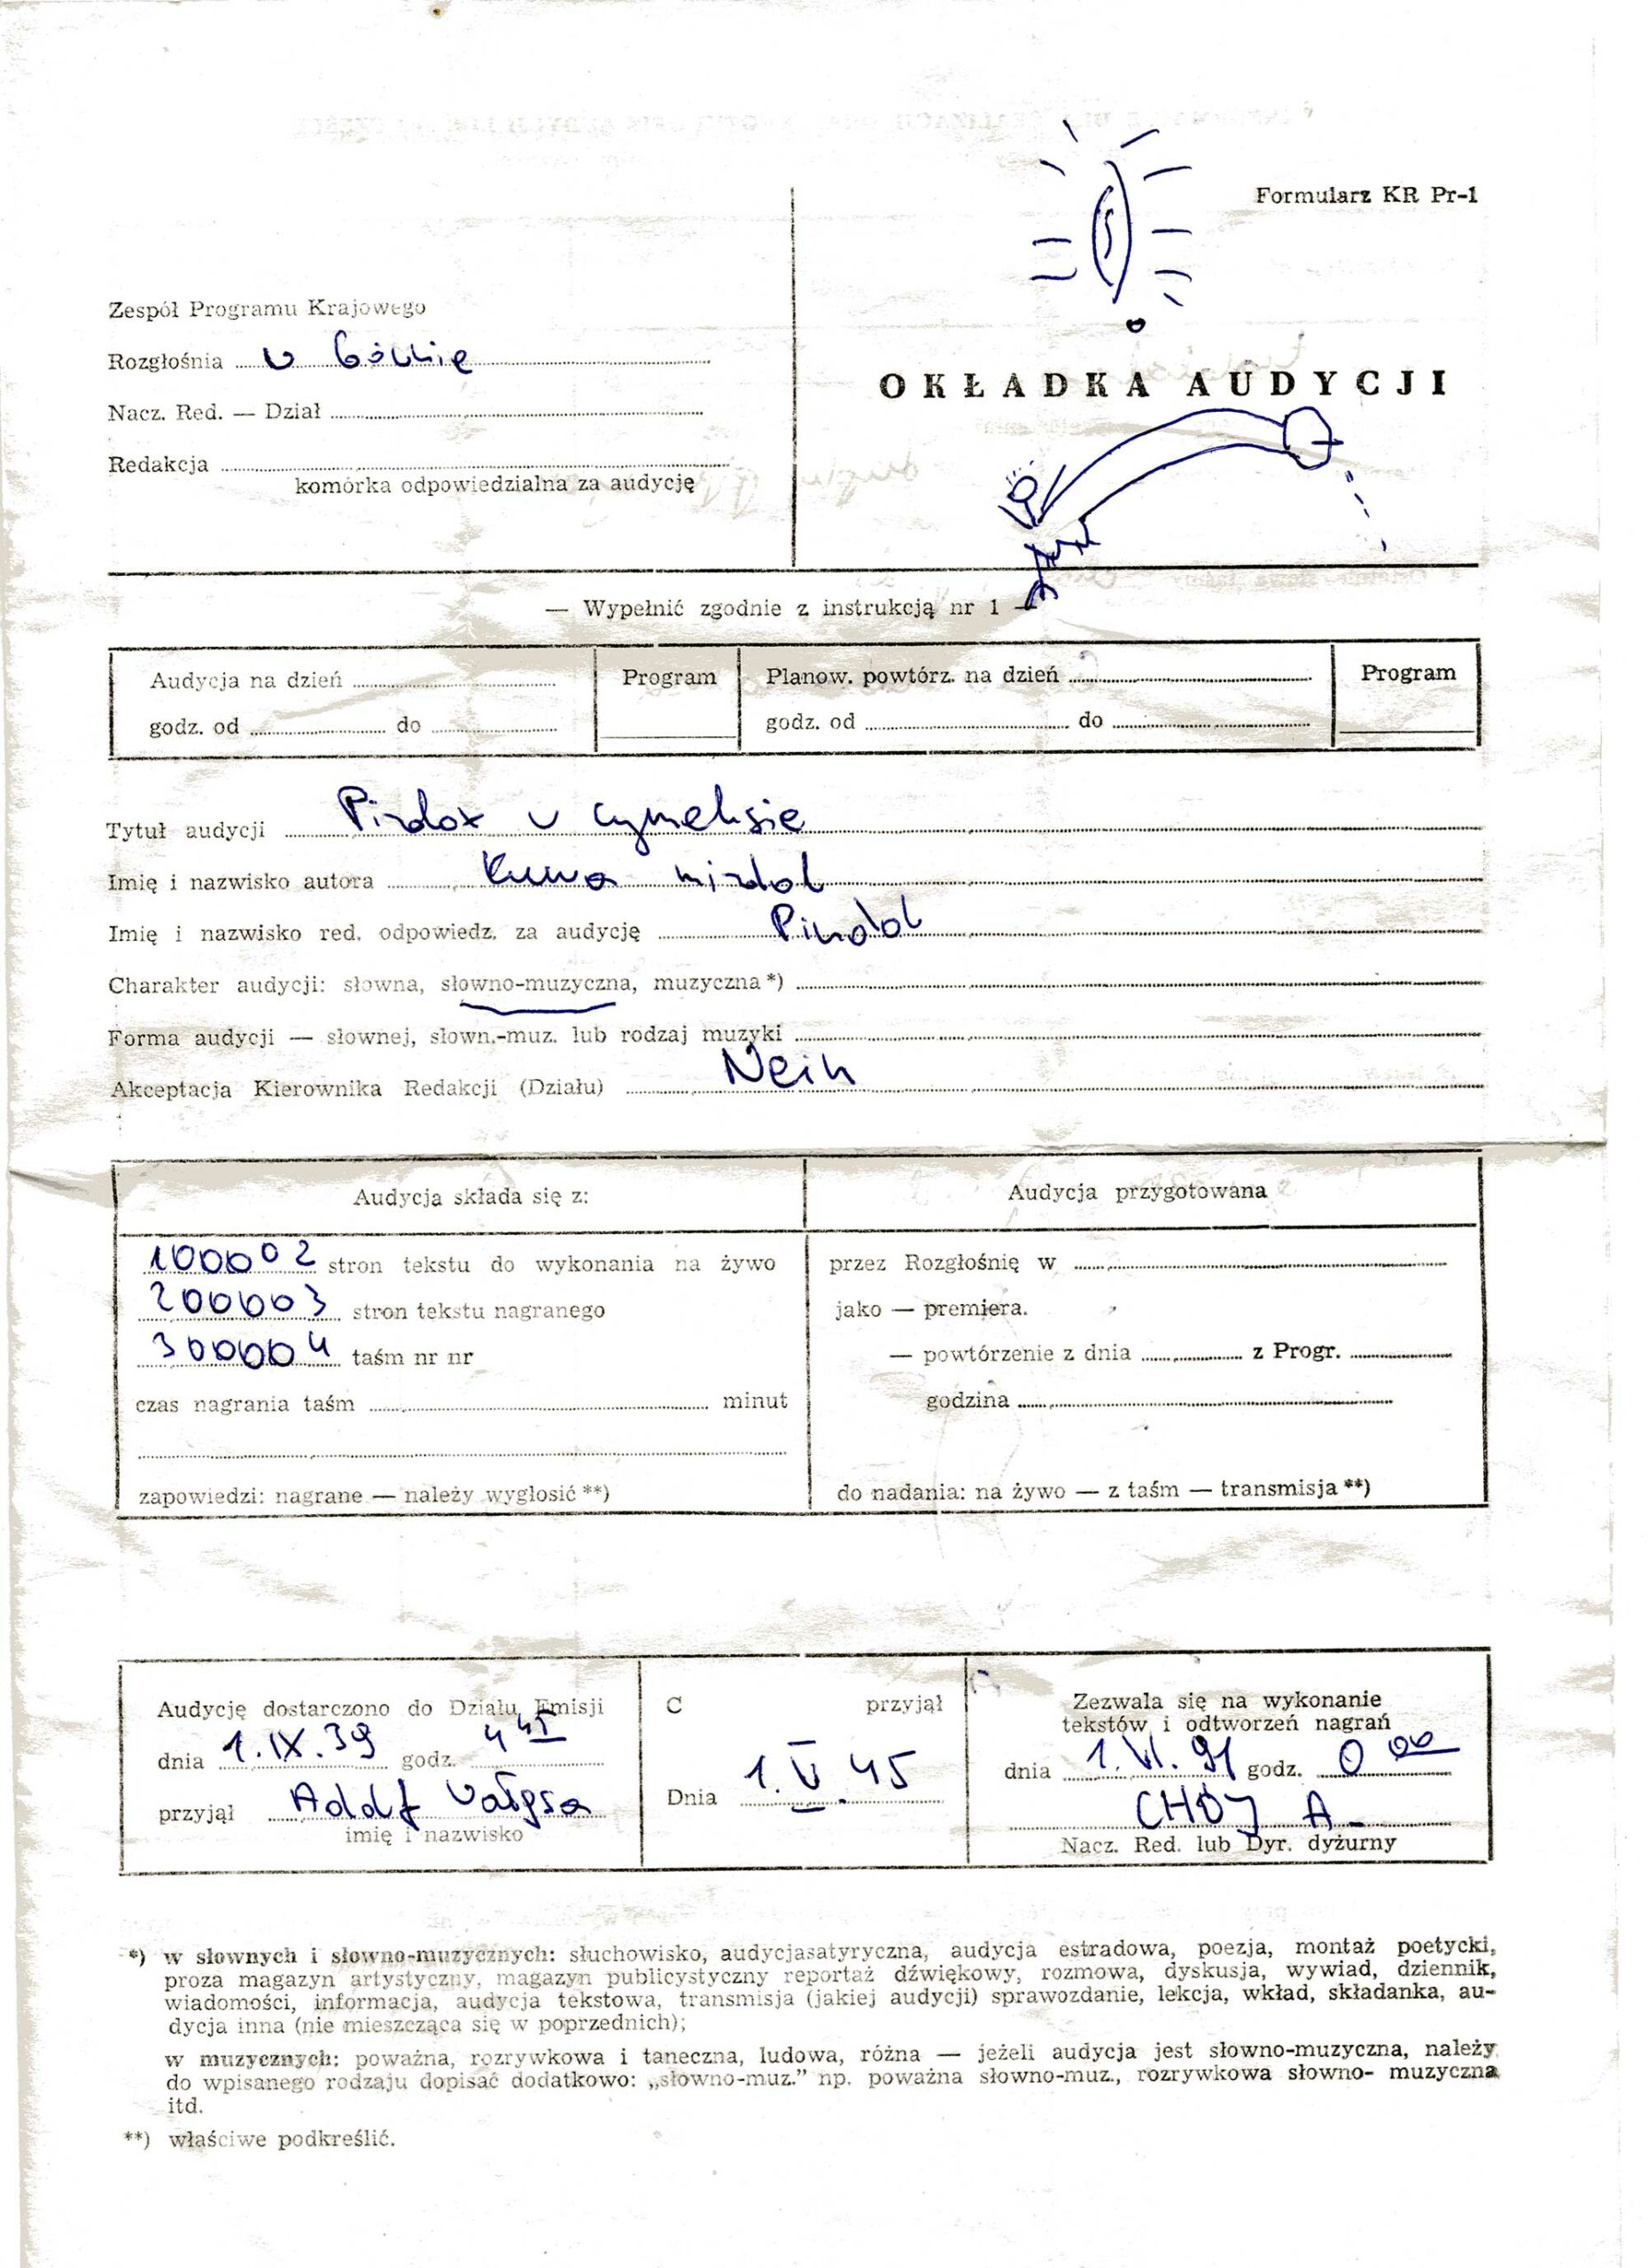 Formularz KR Pr-1
Zespół Programu Krajowego
Rozgłośnia
Nacz. Red. — Dział
Redakcja
komórka odpowiedzialna za audycję
OKŁADKA AUDYCJI
— Wypełnić zgodnie z instrukcją nr 1 —
Audycja na dzień
godz. od do
Program
Planow. powtórz. na dzień
godz. od do
Program
Tytuł audycji
Imię i nazwisko autora
Imię i nazwisko red. odpowiedz. za audycję Pindol
Charakter audycji: słowna, słowno-muzyczna, muzyczna *)
Forma audycji — słownej, słown.-muz. lub rodzaj muzyki
Akceptacja Kierownika Redakcji (Działu) Nein
Audycja składa się z:
100002 stron tekstu do wykonania na żywo
200003 stron tekstu nagranego
300004 taśm nr nr
czas nagrania taśm minut
zapowiedzi: nagrane — należy wygłosić **)
Audycja przygotowana
przez Rozgłośnię w
jako — premiera.
— powtórzenie z dnia z Progr.
godzina
do nadania: na żywo — z taśm — transmisja **)
Audycję dostarczono do Działu Emisji
dnia 1.IX.39 godz. 4 45
przyjął Adolf
imię i nazwisko
C przyjął
Dnia 1.V.45
Zezwala się na wykonanie
tekstów i odtworzeń nagrań
dnia 1.VI.91 godz. 0 00
CHÓJ A.
Nacz. Red. lub Dyr. dyżurny
*) w słownych i słowno-muzycznych: słuchowisko, audycjasatyryczna, audycja estradowa, poezja, montaż poetycki,
proza magazyn artystyczny, magazyn publicystyczny reportaż dźwiękowy, rozmowa, dyskusja, wywiad, dziennik,
wiadomości, informacja, audycja tekstowa, transmisja (jakiej audycji) sprawozdanie, lekcja, wkład, składanka, au-
dycja inna (nie mieszcząca się w poprzednich);
w muzycznych: poważna, rozrywkowa i taneczna, ludowa, różna — jeżeli audycja jest słowno-muzyczna, należy
do wpisanego rodzaju dopisać dodatkowo: „słowno-muz.” np. poważna słowno-muz., rozrywkowa słowno- muzyczna
itd.
**) właściwe podkreślić.